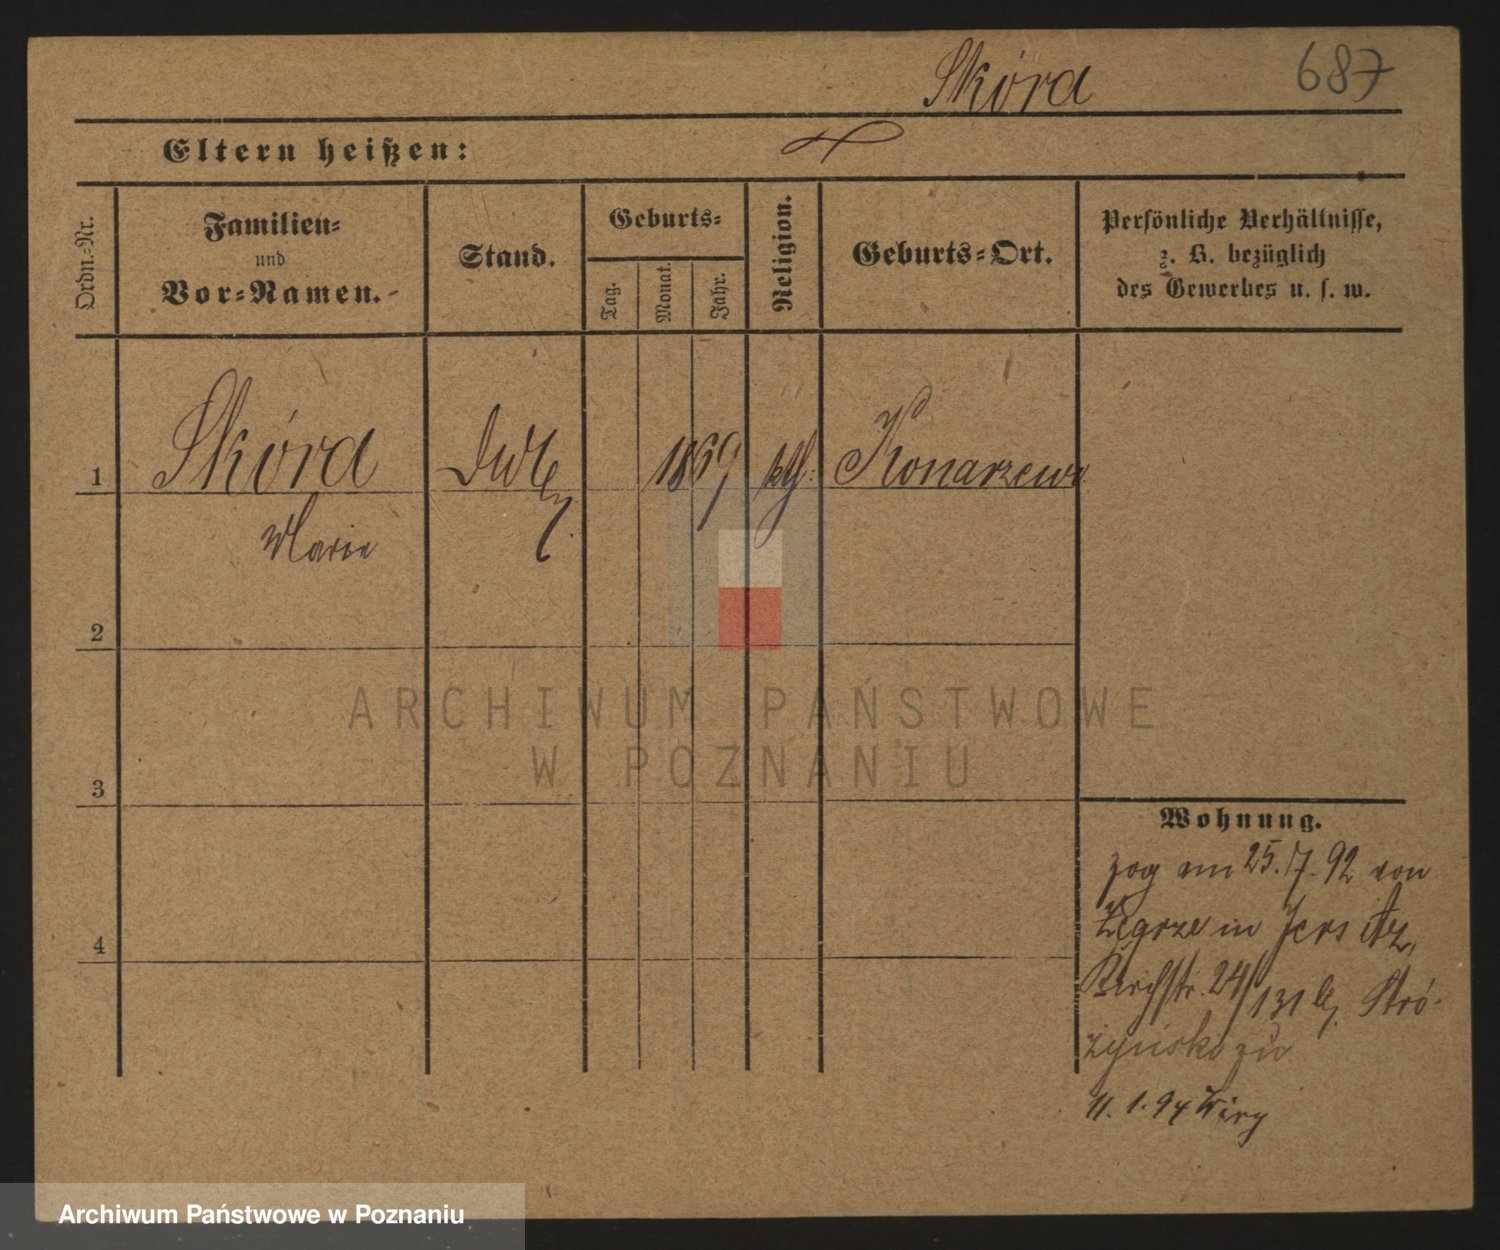 Skóra 687
Eltern heißen:
Ordn.-Nr.
Familien-
und
Vor-Namen.
Stand.
Geburts-
Tag.
Monat.
Jahr.
Religion.
Geburts-Ort.
Persönliche Verhältnisse,
z. B. bezüglich
des Gewerbes u. s. w.
1 Skóra 1869 kth: Konarzewo
Marie
2
3
4
Wohnung.
zog am 25./7. 92 von
Żegrze in Jersitz,
Kirchstr. 24/131 b. Stró-
żyński zu
11. 1. 94
ARCHIWUM PAŃSTWOWE
W POZNANIU
Archiwum Państwowe w Poznaniu